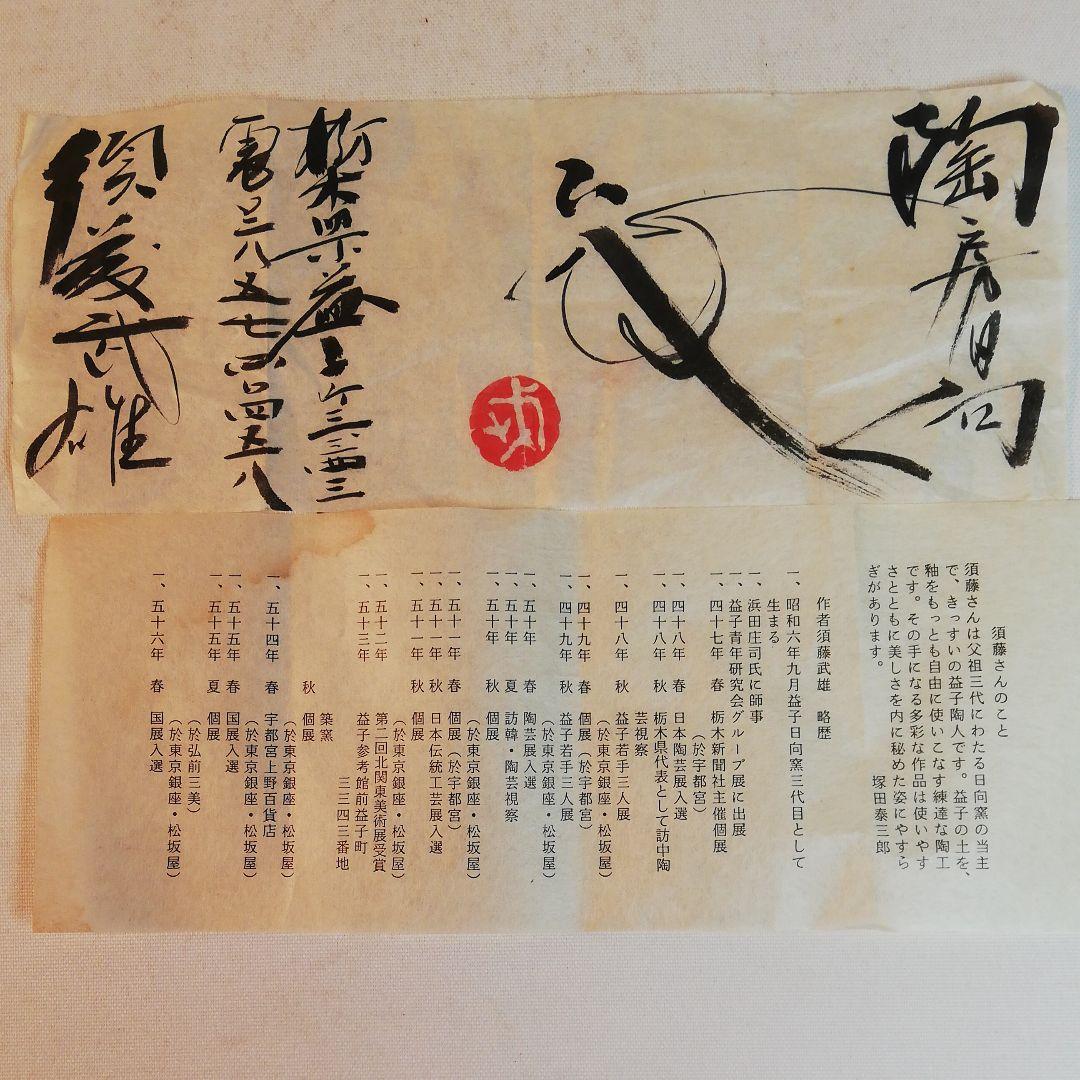 陶房日向
栃木県益子町三三四三
須藤武雄
須藤さんのこと
須藤さんは父祖三代にわたる日向窯の当主
で、きっすいの益子陶人です。益子の土を、
釉をもっとも自由に使いこなす練達な陶工
です。その手になる多彩な作品は使いやす
さとともに美しさを内に秘めた姿にやすら
ぎがあります。
塚田泰三郎
作者須藤武雄 略歴
一、昭和六年九月益子日向窯三代目として
生まる
一、浜田庄司氏に師事
一、益子青年研究会グループ展に出展
一、四十七年 春 栃木新聞社主催個展
（於宇都宮）
一、四十八年 春 日本陶芸展入選
一、四十八年 秋 栃木県代表として訪中陶
芸視察
一、四十八年 秋 益子若手三人展
（於東京銀座・松坂屋）
一、四十九年 春 個展（於宇都宮）
一、四十九年 秋 益子若手三人展
（於東京銀座・松坂屋）
一、五十年 春 陶芸展入選
一、五十年 夏 訪韓・陶芸視察
一、五十年 秋 個展
（於東京銀座・松坂屋）
一、五十一年 春 個展（於宇都宮）
一、五十一年 秋 日本伝統工芸展入選
一、五十一年 秋 個展
（於東京銀座・松坂屋）
一、五十二年 第二回北関東美術展受賞
一、五十三年 益子参考館前益子町
三三四三番地
築窯
秋 個展
（於東京銀座・松坂屋）
一、五十四年 春 宇都宮上野百貨店
（於東京銀座・松坂屋）
一、五十五年 春 国展入選
一、五十五年 夏 個展
（於弘前三美）
（於東京銀座・松坂屋）
一、五十六年 春 国展入選